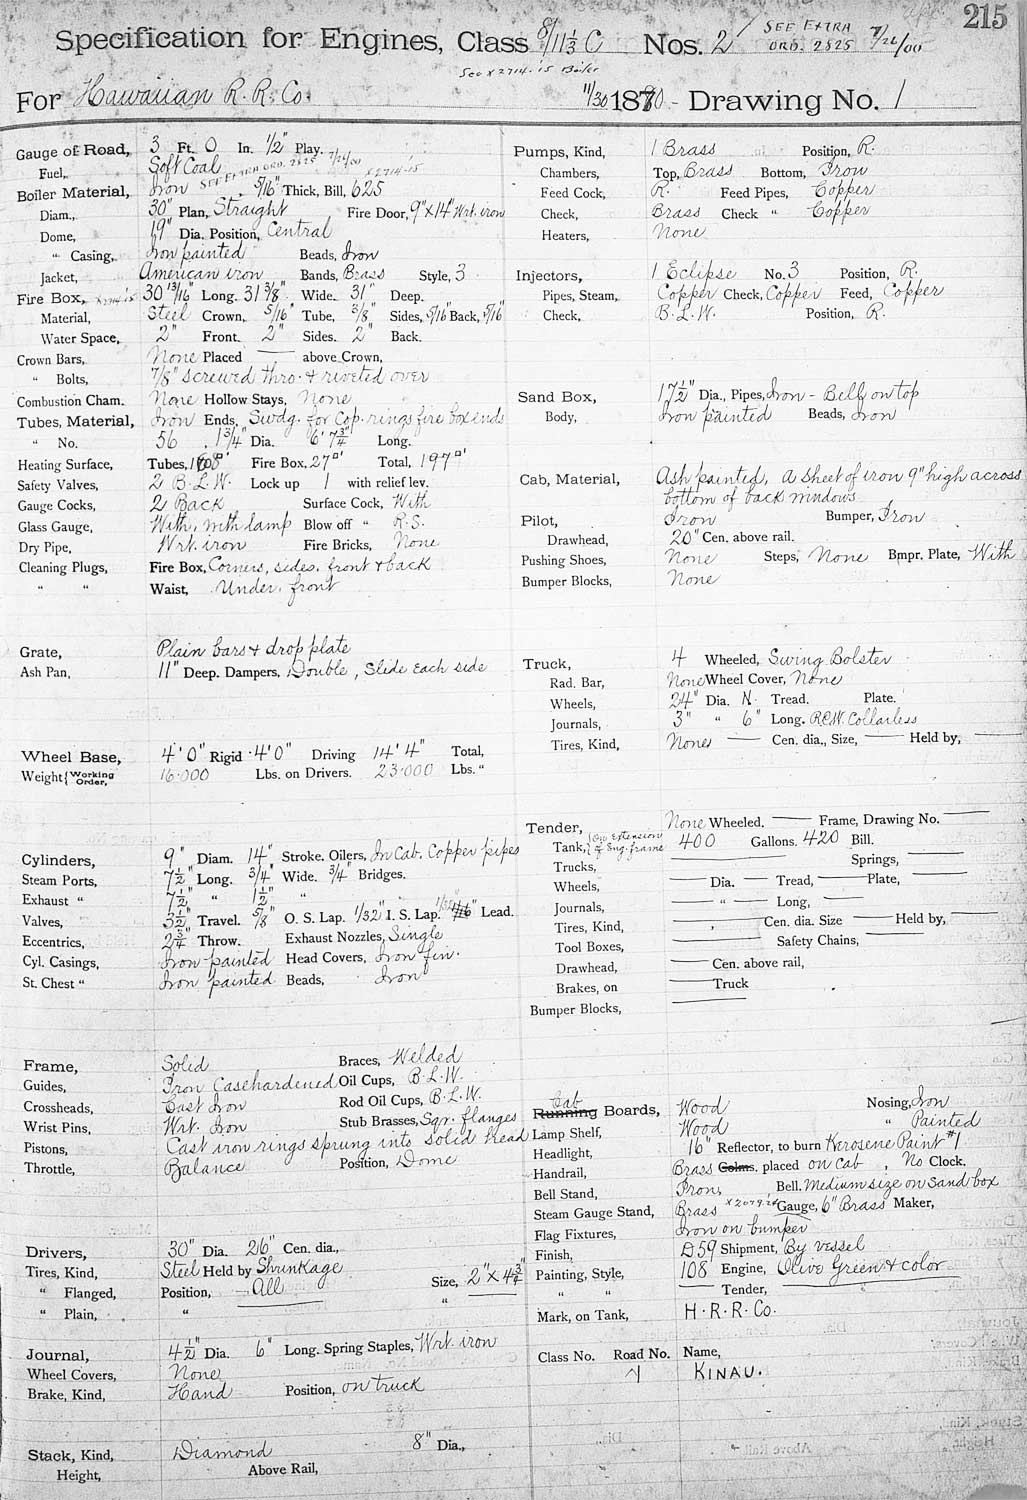 215
Specification for Engines, Class 8/11⅓ C Nos. 2 SEE EXTRA ORD. 2825 7/26/00
See X2714.'15 Boiler
For Hawaiian R. R. Co. 11/30 1880 - Drawing No. 1
Gauge of Road, 3 Ft. 0 In. ½" Play.
Fuel, Soft Coal SEE EXTRA ORD. 2825 7/26/00
X2714-15
Boiler Material, Iron, 5/16" Thick, Bill, 625
Diam., 30" Plan, Straight Fire Door, 9"x14" Wrt. iron
Dome, 19" Dia. Position, Central
" Casing, Iron painted Beads, Iron
Jacket, American iron Bands, Brass Style, 3
Fire Box, X2714-15 30 13/16" Long. 31 3/8" Wide. 31" Deep.
Material, Steel Crown, 5/16" Tube, 3/8" Sides, 5/16 Back, 5/16"
Water Space, 2" Front. 2" Sides. 2" Back.
Crown Bars, None Placed — above Crown,
" Bolts, 7/8" screwed thro. & riveted over
Combustion Cham. None Hollow Stays, None
Tubes, Material, Iron Ends, Swdg. for Cop. rings fire box ends
" No. 56, 1¾" Dia. 6' 7¾" Long.
Heating Surface, Tubes, 168□' Fire Box, 27□' Total, 197□'
Safety Valves, 2 B.L.W. Lock up 1 with relief lev.
Gauge Cocks, 2 Back Surface Cock, With
Glass Gauge, With, with lamp Blow off " R.S.
Dry Pipe, Wrt. iron Fire Bricks, None
Cleaning Plugs, Fire Box, Corners, sides, front & back
" " Waist, Under, front
Grate, Plain bars & drop plate
Ash Pan, 11" Deep. Dampers, Double, Slide each side
Wheel Base, 4' 0" Rigid 4' 0" Driving 14' 4" Total,
Weight { Working Order, 16.000 Lbs. on Drivers. 23.000 Lbs. "
Cylinders, 9" Diam. 14" Stroke. Oilers, In Cab. Copper pipes
Steam Ports, 7½" Long. ¾" Wide. ¾" Bridges.
Exhaust " 7½" " 1½" "
Valves, 3½" Travel. 5/8" O. S. Lap. 1/32" I. S. Lap. 1/32" 1/16" Lead.
Eccentrics, 2¾" Throw. Exhaust Nozzles, Single
Cyl. Casings, Iron painted Head Covers, Iron fin.
St. Chest " Iron painted Beads, Iron
Frame, Solid Braces, Welded
Guides, Iron Casehardened Oil Cups, B.L.W.
Crossheads, Cast Iron Rod Oil Cups, B.L.W.
Wrist Pins, Wrt. Iron Stub Brasses, Sqr. flanges
Pistons, Cast iron rings sprung into solid head
Throttle, Balance Position, Dome
Drivers, 30" Dia. 26" Cen. dia.,
Tires, Kind, Steel Held by Shrinkage
" Flanged, Position, All Size, 2" x 4¾"
" Plain, " "
Journal, 4½" Dia. 6" Long. Spring Staples, Wrt. iron
Wheel Covers, None
Brake, Kind, Hand Position, on truck
Stack, Kind, Diamond 8" Dia.,
Height, Above Rail,
Pumps, Kind, 1 Brass Position, R.
Chambers, Top, Brass Bottom, Iron
Feed Cock, R. Feed Pipes, Copper
Check, Brass Check " Copper
Heaters, None
Injectors, 1 Eclipse No. 3 Position, R.
Pipes, Steam, Copper Check, Copper Feed, Copper
Check, B.L.W. Position, R.
Sand Box, 17½" Dia., Pipes, Iron - Bell on top
Body, Iron painted Beads, Iron
Cab, Material, Ash painted, a sheet of iron 9" high across
bottom of back windows
Pilot, Iron Bumper, Iron
Drawhead, 20" Cen. above rail.
Pushing Shoes, None Steps, None Bmpr. Plate, With
Bumper Blocks, None
Truck, 4 Wheeled, Swing Bolster
Rad. Bar, None Wheel Cover, None
Wheels, 24" Dia. N. Tread. Plate.
Journals, 3" " 6" Long. R&W. Collarless
Tires, Kind, None — Cen. dia., Size, — Held by, —
Tender, None Wheeled. — Frame, Drawing No. —
Tank, { On extension of Eng. frame 400 Gallons. 420 Bill.
Trucks, — Springs, —
Wheels, — Dia. — Tread, — Plate, —
Journals, — " — Long, —
Tires, Kind, — , — Cen. dia. Size — Held by, —
Tool Boxes, — Safety Chains, —
Drawhead, — Cen. above rail,
Brakes, on — Truck
Bumper Blocks, —
Cab
Running Boards, Wood Nosing, Iron
Lamp Shelf, Wood " Painted
Headlight, 16" Reflector, to burn Kerosene Paint #1
Handrail, Brass Colms. placed on cab, No Clock.
Bell Stand, Iron, Bell. Medium size on Sand box
Steam Gauge Stand, Brass Gauge, 6" Brass Maker,
Flag Fixtures, Iron on bumper
Finish, D59 Shipment, By vessel
Painting, Style, 108 Engine, Olive Green & color
" " — Tender,
Mark, on Tank, H. R. R. Co.
Class No. Road No. Name,
KINAU.